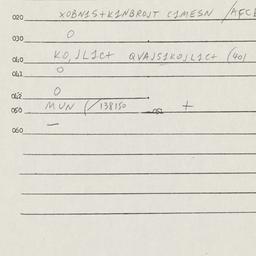 020 XOBN1S+K1NBROJT C1MESN /AFCE
030 O
040 KO,JL1C+ QVAJS1KOJL1C+ (40/
041 O
042 O
050 MUN (/138150 —052 +
060 —